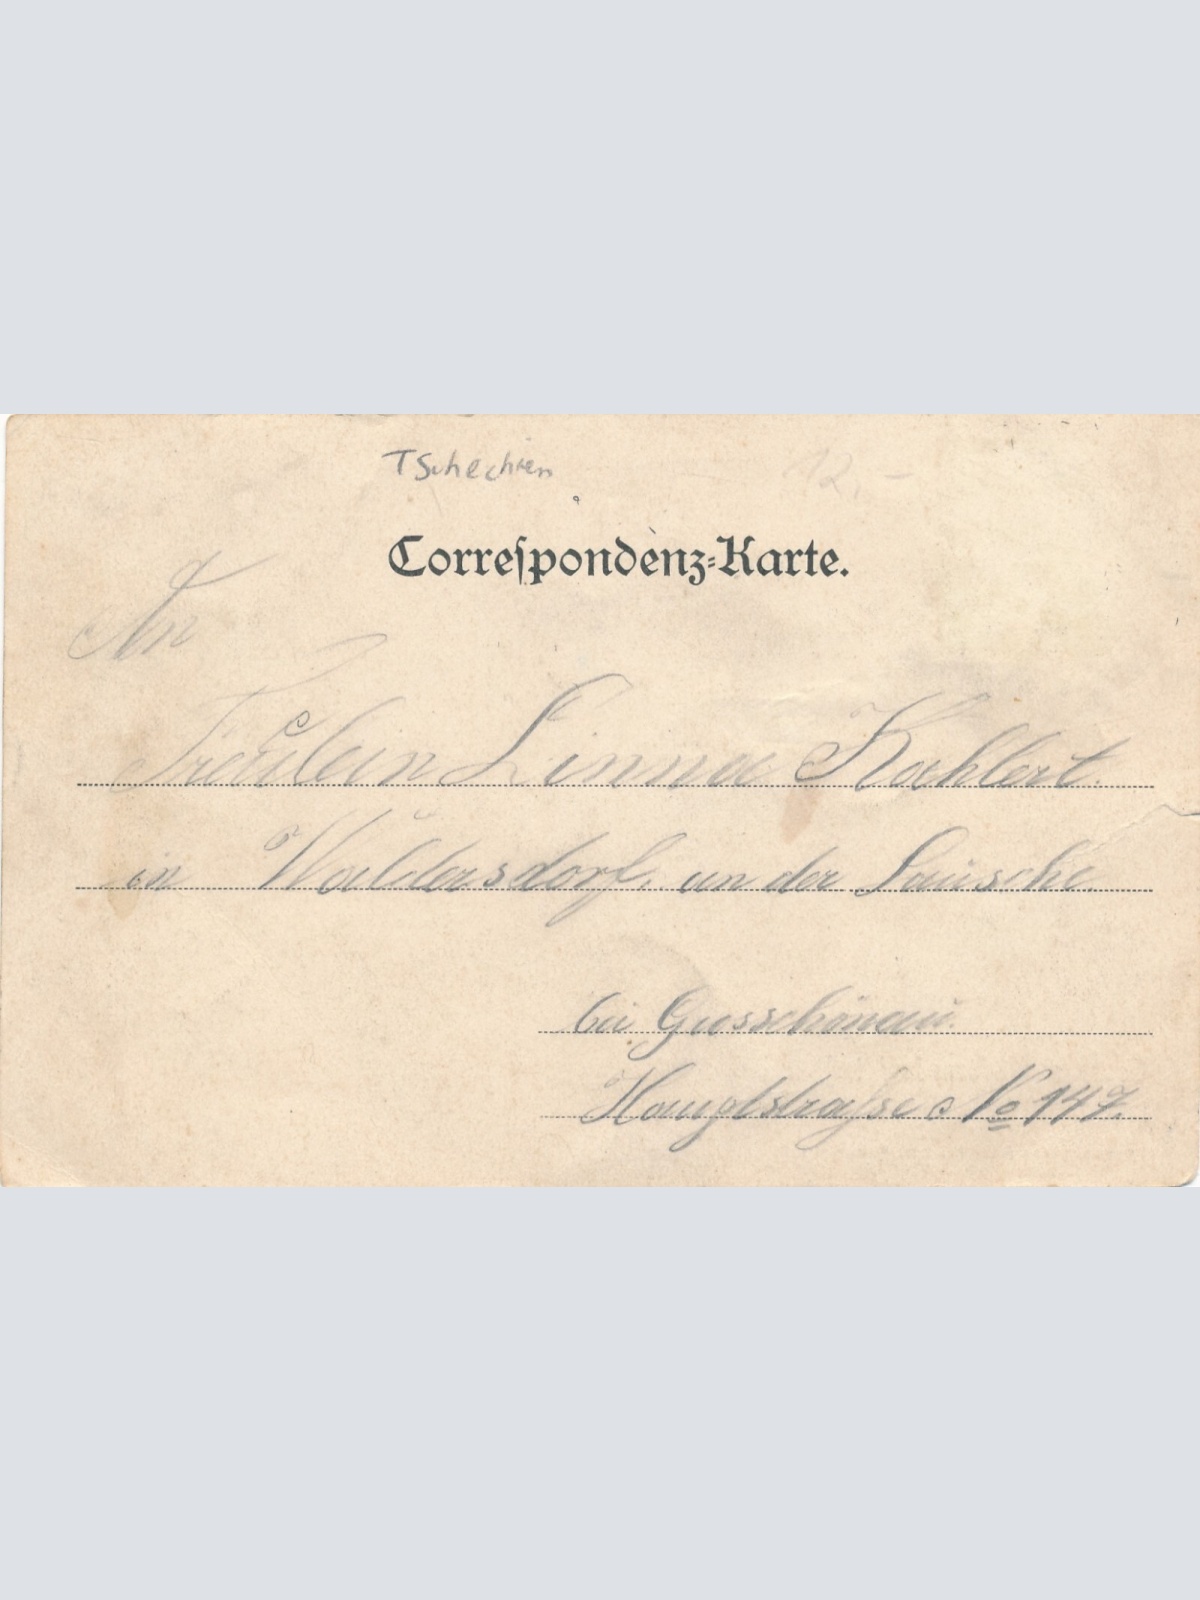 Tschechien
12,-
Correſpondenz-Karte.
An
Fräulein Linna Kochlert.
in Waltersdorf. an der Lausche.
bei Grossschönau.
Hauptstraße No 147.